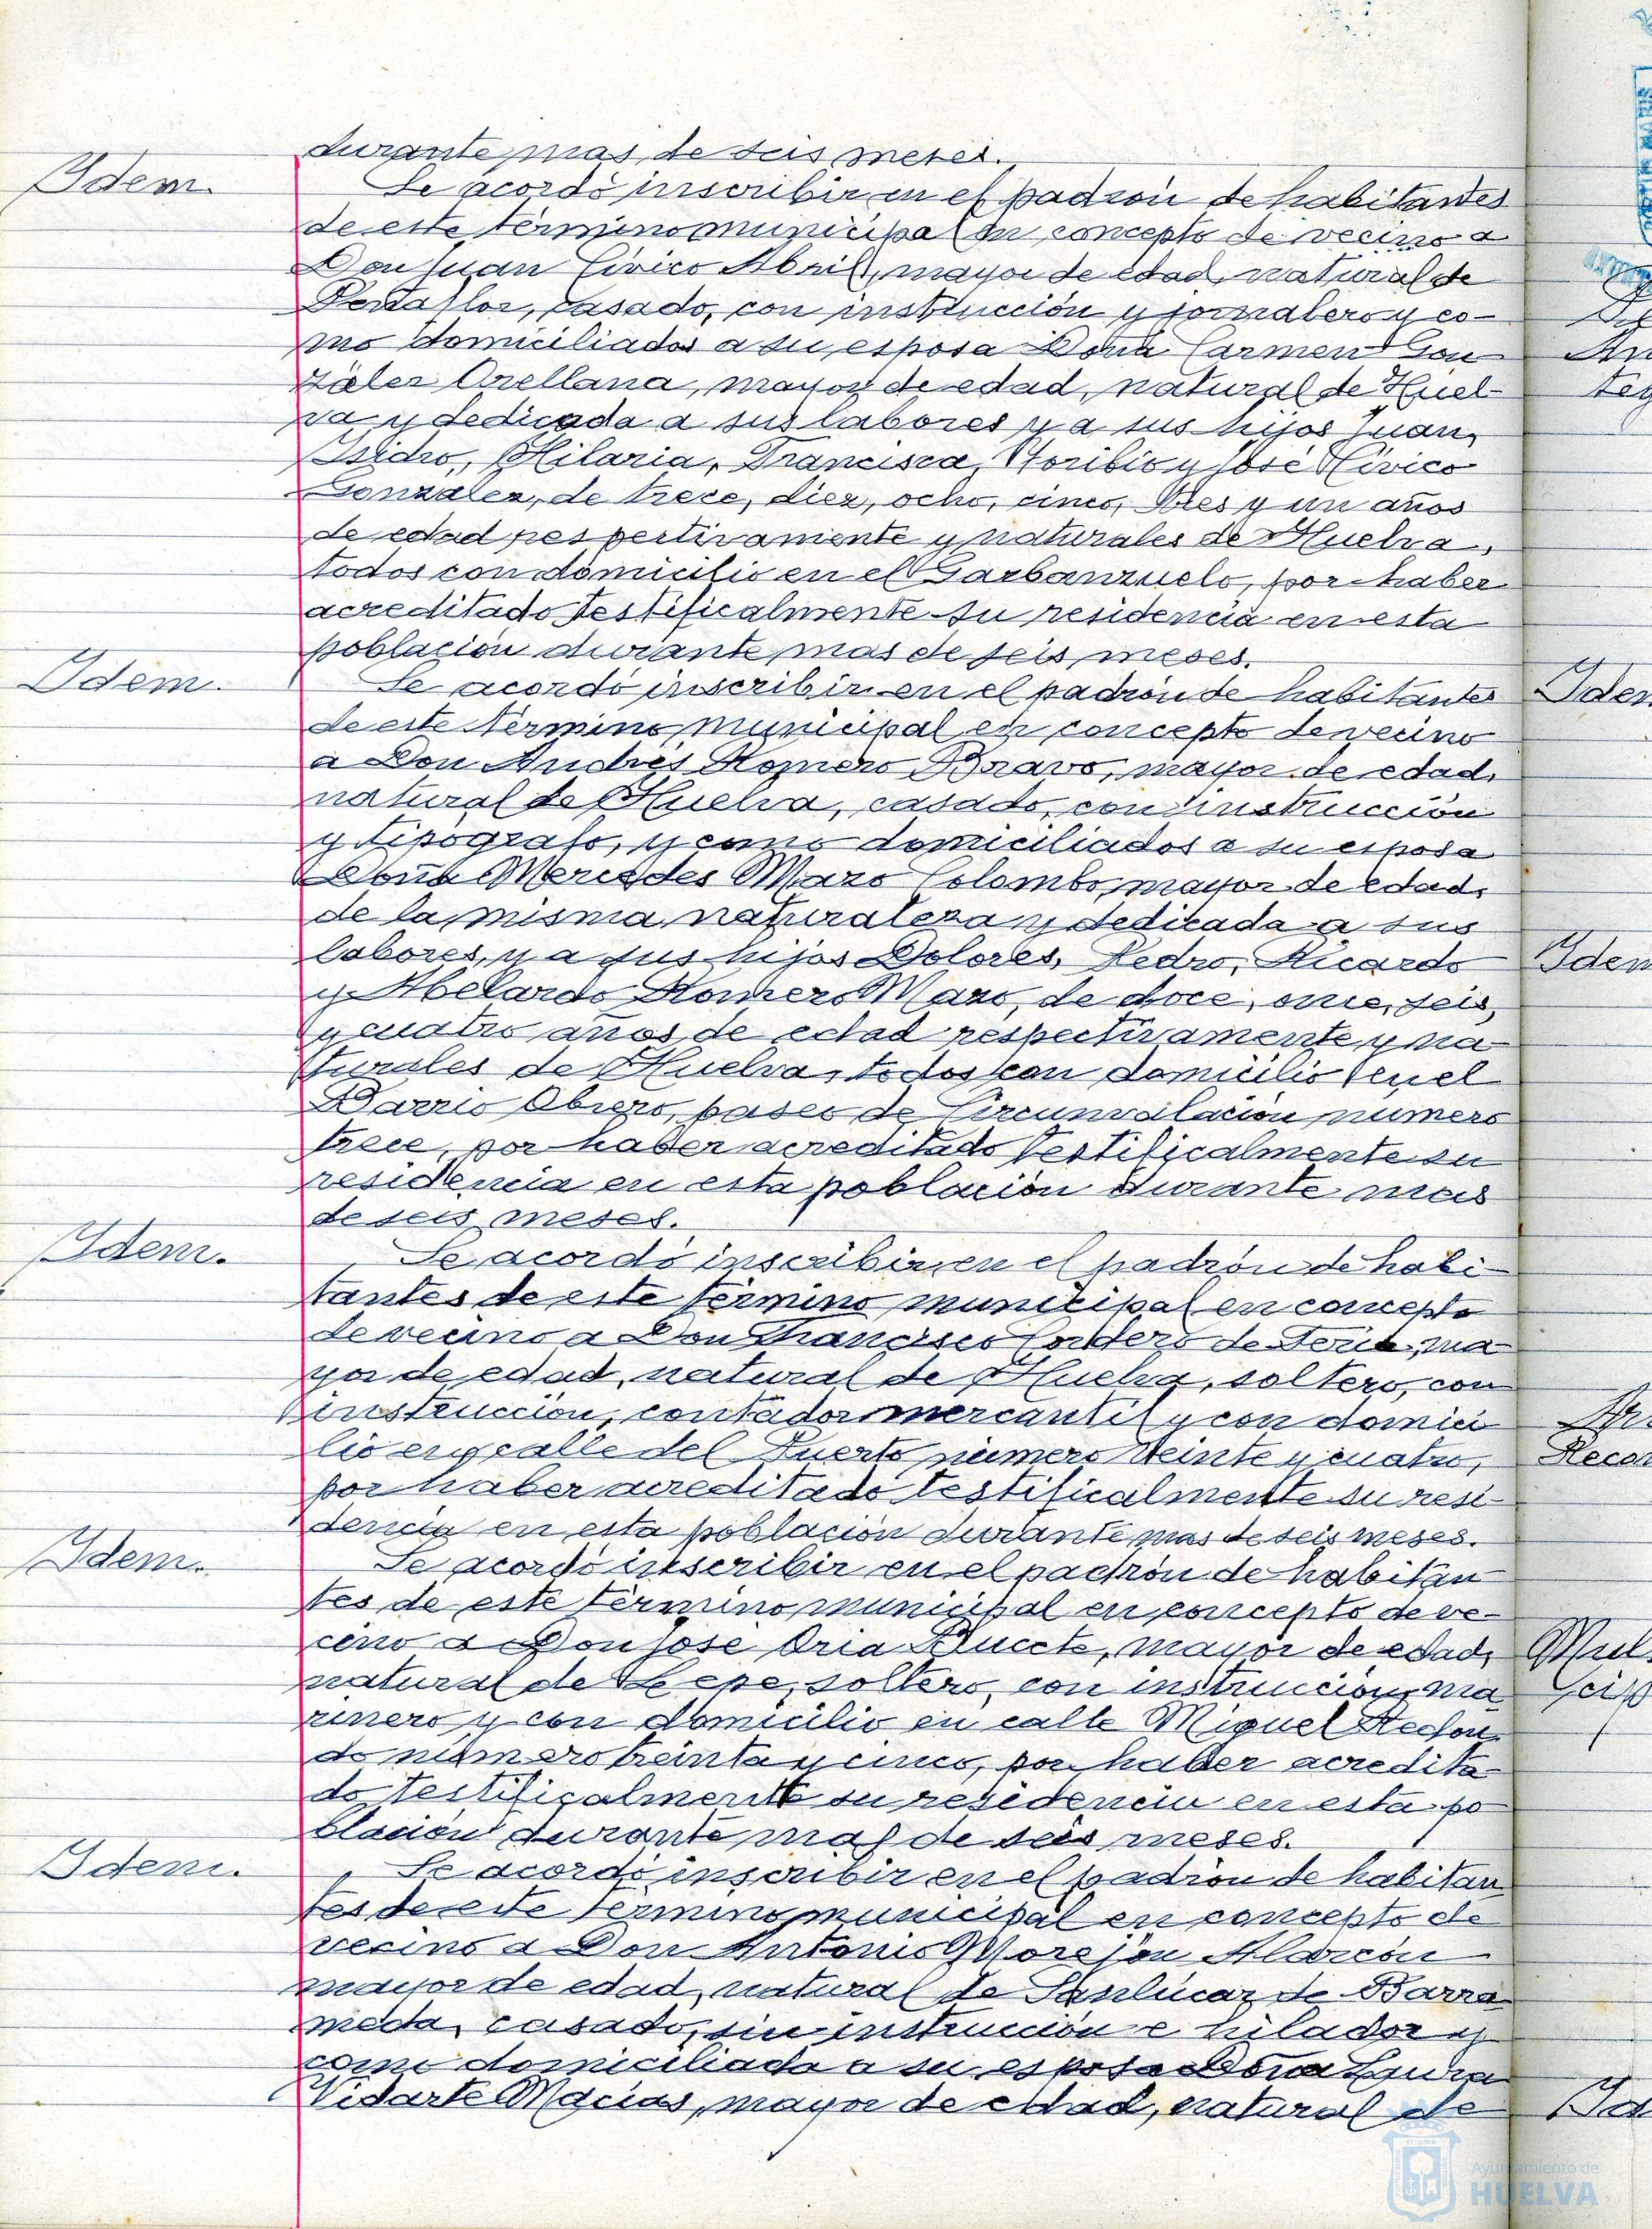 durante mas de seis meses.
Idem.
Se acordó inscribir en el padrón de habitantes
de este término municipal en concepto de vecino a
Don Juan Cívico Abril, mayor de edad, natural de
Peñaflor, casado, con instrucción y jornalero y co-
mo domiciliados a su esposa Doña Carmen Gon
zález Orellana, mayor de edad, natural de Huel-
va y dedicada a sus labores y a sus hijos Juan,
Isidro, Hilaria, Francisca, Toribio y José Cívico
Gonzalez, de trece, diez, ocho, cinco, tres y un años
de edad respectivamente y naturales de Huelva,
todos con domicilio en el Garbanzuelo, por haber
acreditado testificalmente su residencia en esta
población durante mas de seis meses.
Idem.
Se acordó inscribir en el padrón de habitantes
de este término municipal en concepto de vecino
a Don Andrés Romero Bravo, mayor de edad,
natural de Huelva, casado, con instrucción
y tipógrafo, y como domiciliados a su esposa
Doña Mercedes Mazo Colombo, mayor de edad,
de la misma naturaleza y dedicada a sus
labores, y a sus hijos Dolores, Pedro, Ricardo
y Abelardo Romero Mazo, de doce, once, seis,
y cuatro años de edad respectivamente y na
turales de Huelva, todos con domicilio en el
Barrio Obrero, paseo de Circunvalación numero
trece, por haber acreditado testificalmente su
residencia en esta población durante mas
de seis meses.
Idem.
Se acordó inscribir en el padrón de habi-
tantes de este término municipal en concepto
de vecino a Don Francisco Cordero de Feria, ma
yor de edad, natural de Huelva, soltero, con
instrucción, contador mercantil y con domici
lio en calle del Puerto número veinte y cuatro,
por haber acreditado testificalmente su resi-
dencia en esta población durante mas de seis meses.
Idem.
Se acordó inscribir en el padrón de habitan
tes de este término municipal en concepto de ve-
cino a Don José Oria, mayor de edad,
natural de Lepe, soltero, con instrucción, ma
rinero y con domicilio en calle Miguel Redon
do número treinta y cinco, por haber acredita
do testificalmente su residencia en esta po
blación durante mas de seis meses.
Idem.
Se acordó inscribir en el padrón de habitan
tes de este término municipal en concepto de
vecino a Don Antonio Morejon Alarcón
mayor de edad, natural de Sanlúcar de Barra
meda, casado, sin instrucción e hilador y
como domiciliada a su esposa Doña Laura
Vidarte Macías, mayor de edad, natural de
Ayuntamiento de
HUELVA